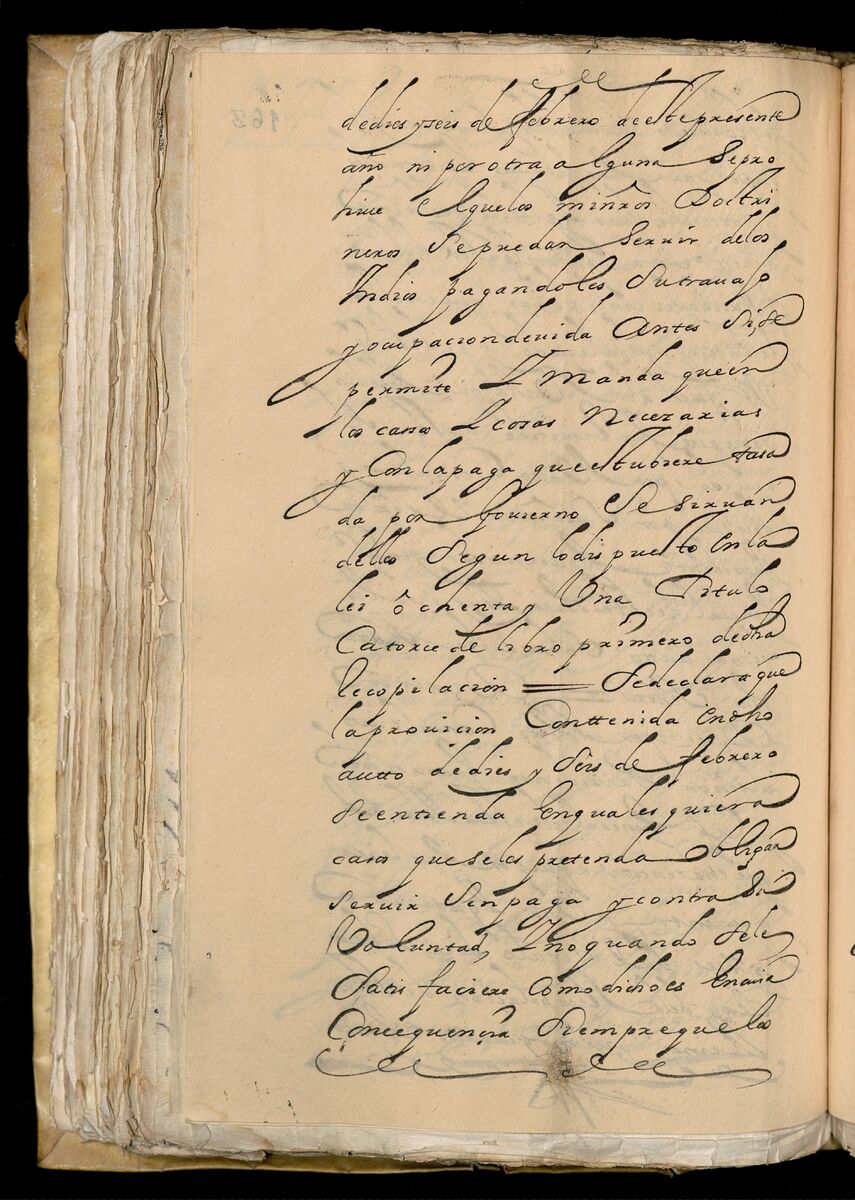 dedies y seis de febrero de este presente
año ni por otra alguna Sepro
hive elquelos minr̃os Doctri
neros Sepuedan Servir delos
Indios pagandoles Sutravajo
y ocupacion devida Antes Si, se
permite Y manda que en
los casos Y cosas Necezarias
y Con la paga que estubiere tasa
da por Govierno Se siruan
dellos Segun lo dispuesto en la
lei ôchenta y Una Titulo
Catorce de libro primero dedha
Recopilacion = Sedeclara que
la provicion Conttenida en dho
autto dedies y Seis de febrero
Se entienda en quales quiera
casos que se les pretenda obligar
servir Sin paga y contra Su
Voluntad, Y no quando Seles
Satisfaciere Como dicho es En cuia
Concequencia Siempre que los